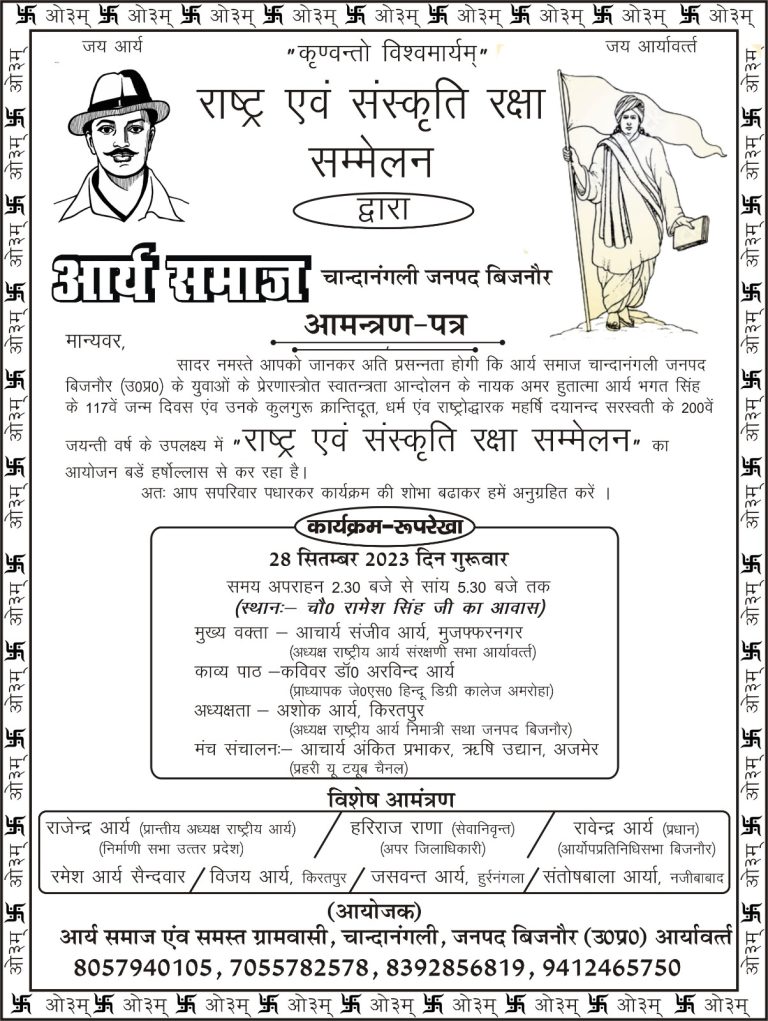 卐 ओ३म् 卐 ओ३म् 卐 ओ३म् 卐 ओ३म् 卐 ओ३म् 卐 ओ३म् 卐 ओ३म् 卐 ओ३म् 卐
जय आर्य
"कृण्वन्तो विश्वमार्यम्"
जय आर्यावर्त्त
राष्ट्र एवं संस्कृति रक्षा
सम्मेलन
द्वारा
आर्य समाज चान्दानंगली जनपद बिजनौर
आमन्त्रण-पत्र
मान्यवर,
सादर नमस्ते आपको जानकर अति प्रसन्नता होगी कि आर्य समाज चान्दानंगली जनपद
बिजनौर (उ0प्र0) के युवाओं के प्रेरणास्त्रोत स्वातन्त्रता आन्दोलन के नायक अमर हुतात्मा आर्य भगत सिंह
के 117वें जन्म दिवस एंव उनके कुलगुरू क्रान्तिदूत, धर्म एंव राष्ट्रोद्धारक महर्षि दयानन्द सरस्वती के 200वें
जयन्ती वर्ष के उपलक्ष्य में "राष्ट्र एवं संस्कृति रक्षा सम्मेलन" का
आयोजन बडें हर्षोल्लास से कर रहा है।
अतः आप सपरिवार पधारकर कार्यक्रम की शोभा बढाकर हमें अनुग्रहित करें ।
कार्यक्रम-रूपरेखा
28 सितम्बर 2023 दिन गुरूवार
समय अपराहन 2.30 बजे से सांय 5.30 बजे तक
(स्थानः– चौ0 रामेश सिंह जी का आवास)
मुख्य वक्ता – आचार्य संजीव आर्य, मुजफ्फरनगर
(अध्यक्ष राष्ट्रीय आर्य संरक्षणी सभा आर्यावर्त्त)
काव्य पाठ –कविवर डॉ0 अरविन्द आर्य
(प्राध्यापक जे0एस0 हिन्दू डिग्री कालेज अमरोहा)
अध्यक्षता – अशोक आर्य, किरतपुर
(अध्यक्ष राष्ट्रीय आर्य निमात्री सथा जनपद बिजनौर)
मंच संचालनः– आचार्य अंकित प्रभाकर, ऋषि उद्यान, अजमेर
(प्रहरी यू टयूब चैनल)
विशेष आमंत्रण
राजेन्द्र आर्य (प्रान्तीय अध्यक्ष राष्ट्रीय आर्य) / हरिराज राणा (सेवानिवृन्त) / रावेन्द्र आर्य (प्रधान)
(निर्माणी सभा उत्तर प्रदेश) (अपर जिलाधिकारी) (आर्योपप्रतिनिधिसभा बिजनौर)
रमेश आर्य सैन्दवार / विजय आर्य, किरतपुर / जसवन्त आर्य, हुर्रनंगला / संतोषबाला आर्या, नजीबाबाद
(आयोजक)
आर्य समाज एंव समस्त ग्रामवासी, चान्दानंगली, जनपद बिजनौर (उ0प्र0) आर्यावर्त्त
8057940105, 7055782578, 8392856819, 9412465750
卐 ओ३म् 卐 ओ३म् 卐 ओ३म् 卐 ओ३म् 卐 ओ३म् 卐 ओ३म् 卐 ओ३म् 卐 ओ३म् 卐